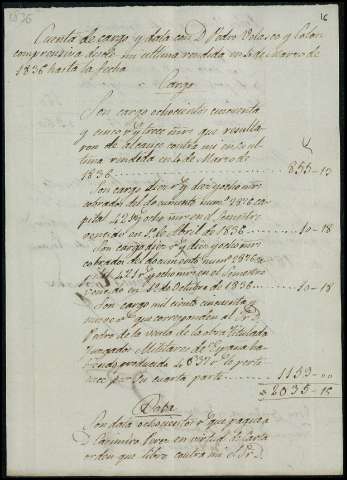 1836
16
Cuenta de cargo y data con D. Pedro Velasco y Colón
comprensiva desde mi ultima rendida en 4 de Marzo de
1836 hasta la fecha
Cargo
Son cargo ochocientos cincuenta
y cinco r.s y trece mrs que resulta
ron de alcance contra mi en la ul
tima rendida en 4 de Marzo de
1836 855-13
Son cargo diez r.s y diez y ocho mrs
cobrados del documento num.
vencido en Abril de 1836 10-18
Son cargo diez r.s y diez y ocho mrs
cobrados del documento num.
en el semestre
vencido en 1.º de Octubre de 1836 10-18
Son cargo mil ciento cincuenta y
nueve r.s que corresponden al Sr. D.
Pedro de la venta de la obra titulada
Juzgados Militares de España ha
biendo producido
cuarta parte 1159-"
2035-15
Data
Son data ochocientos r.s que pague a
D. Casimiro en virtud de carta
orden que libro contra mi el Sr. D.